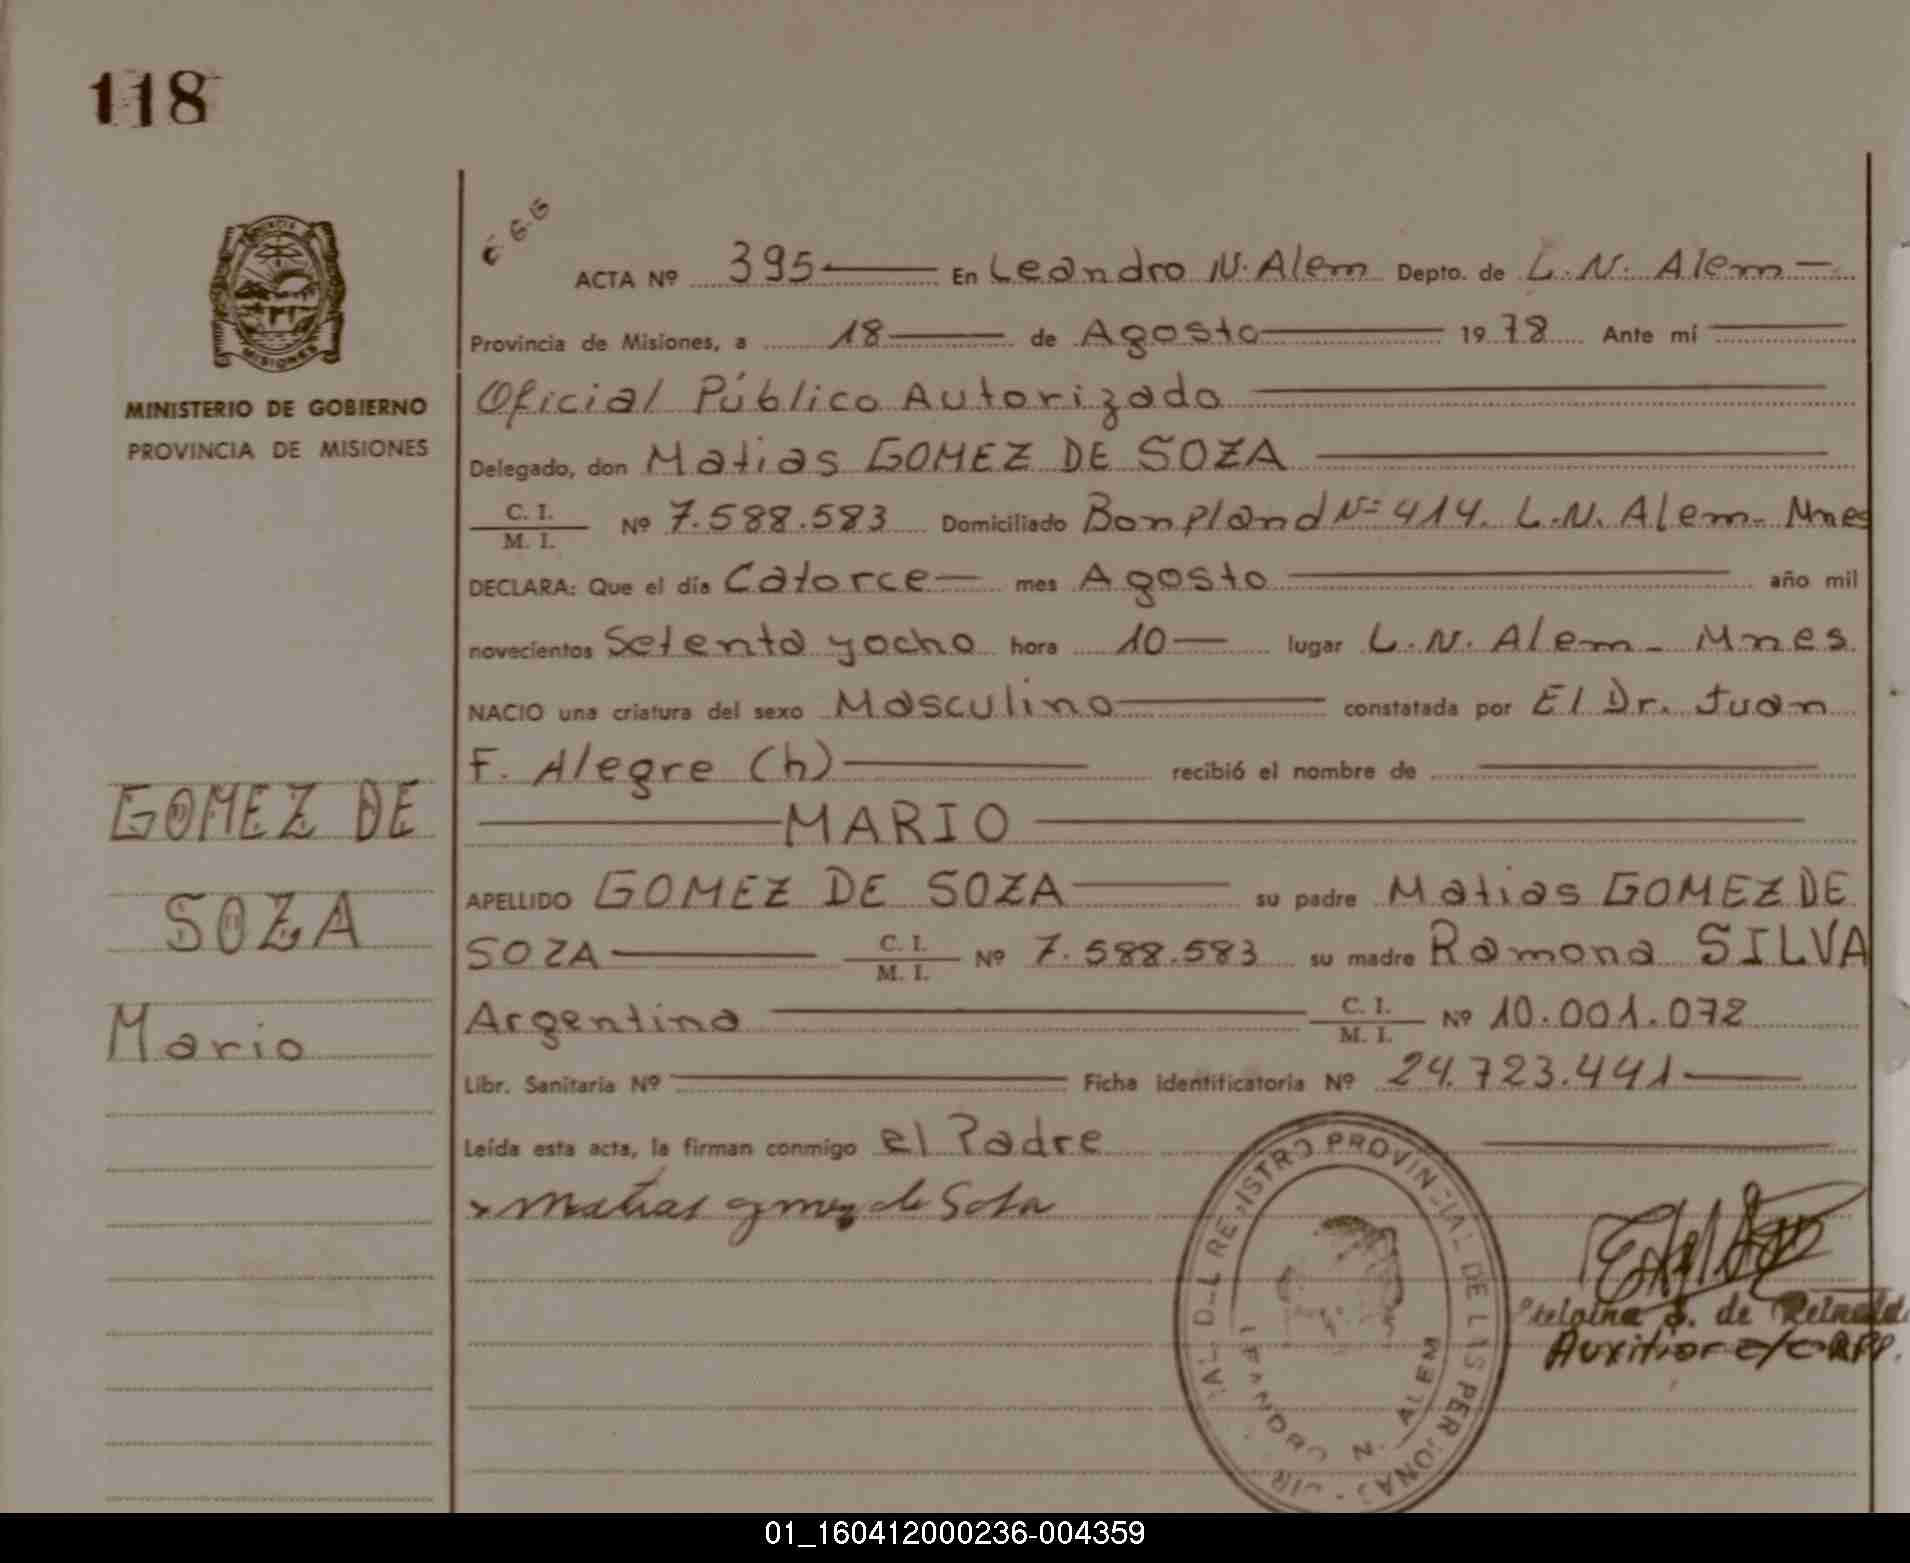 118
E.G.G
ACTA Nº 395 En Leandro N. Alem Depto. de L. N. Alem
Provincia de Misiones, a 18 de Agosto 1978 Ante mí
Oficial Público Autorizado
Delegado, don Matias GOMEZ DE SOZA
C. I. / M. I. Nº 7.588.583 Domiciliado Bonpland Nº 414. L.N. Alem- Mnes
DECLARA: Que el día Catorce mes Agosto año mil
novecientos Setenta y ocho hora 10 lugar L.N. Alem - Mnes
NACIO una criatura del sexo Masculino constatada por El Dr. Juan
F. Alegre (h) recibió el nombre de
MARIO
APELLIDO GOMEZ DE SOZA su padre Matias GOMEZ DE
SOZA C. I. / M. I. Nº 7.588.583 su madre Ramona SILVA
Argentina C. I. / M. I. Nº 10.001.072
Libr. Sanitaria Nº Ficha identificatoria Nº 24.723.441
Leída esta acta, la firman conmigo el Padre
Matias gomez de Soza
MISIONES
MINISTERIO DE GOBIERNO
PROVINCIA DE MISIONES
GOMEZ DE
SOZA
Mario
REGISTRO PROVINCIAL DE LAS PERSONAS
LEANDRO N. ALEM
01_160412000236-004359